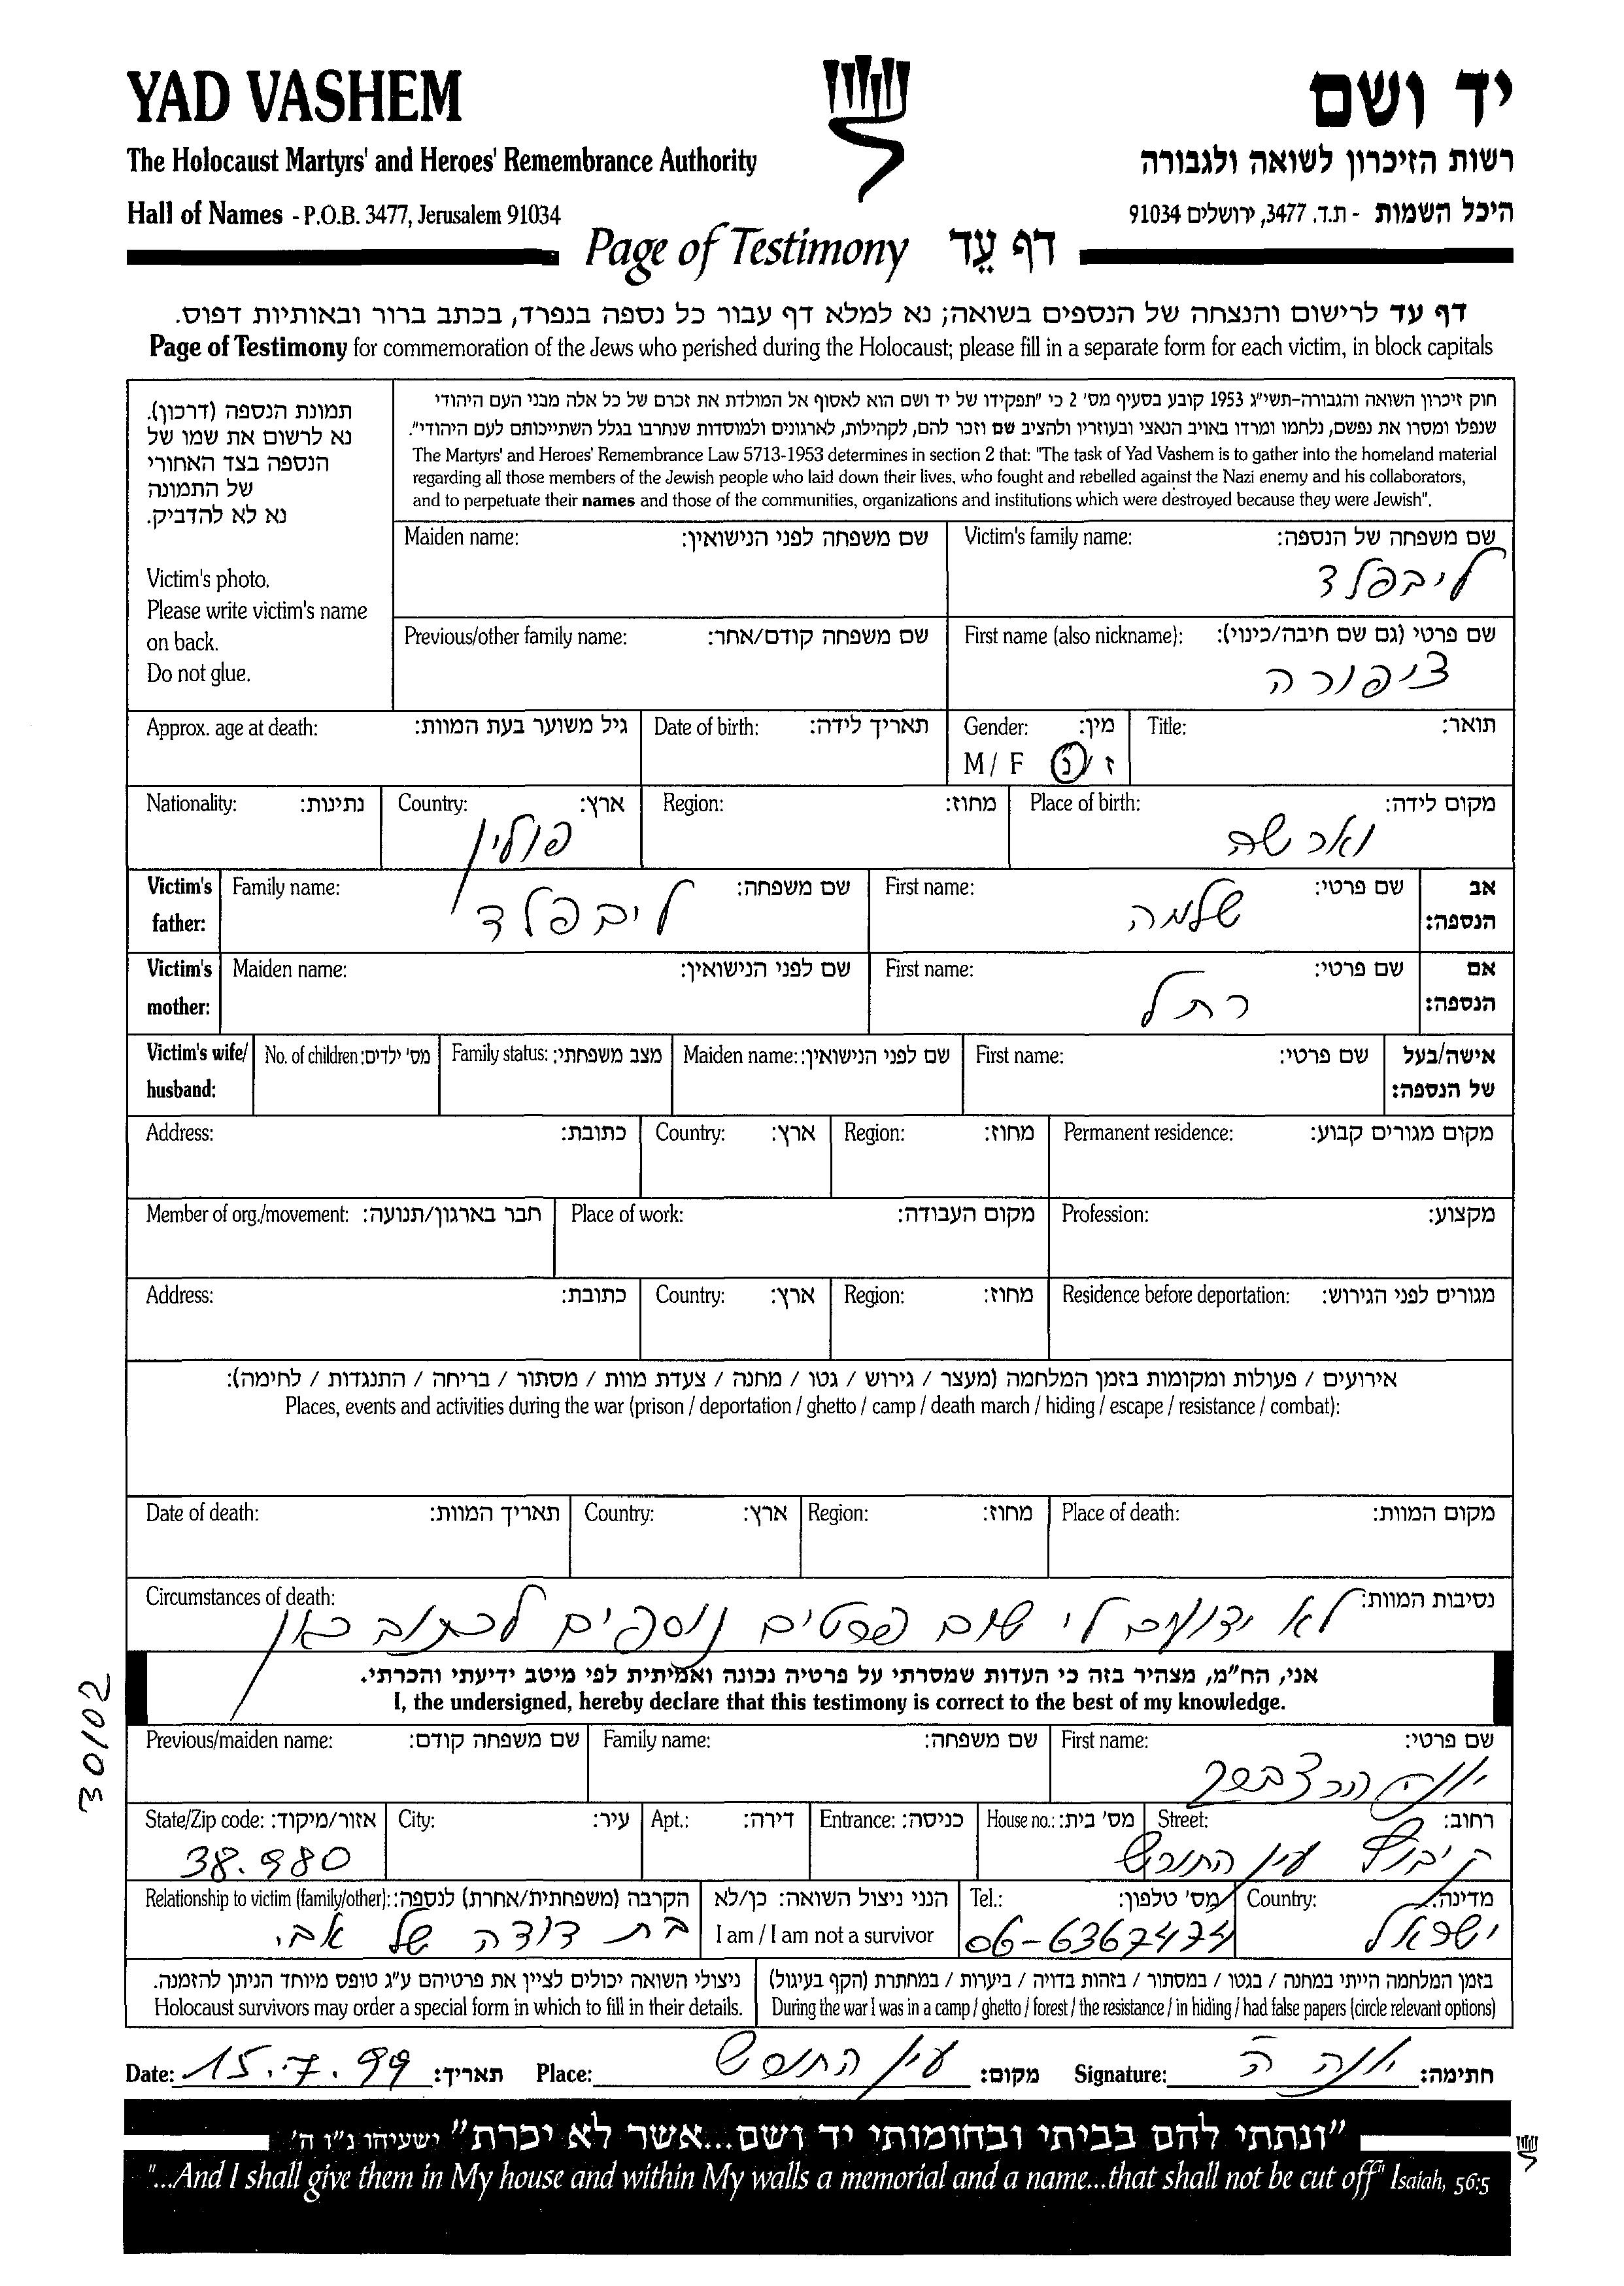 YAD VASHEM
יד ושם
The Holocaust Martyrs' and Heroes' Remembrance Authority
רשות הזיכרון לשואה ולגבורה
Hall of Names - P.O.B. 3477, Jerusalem 91034
היכל השמות - ת.ד. 3477, ירושלים 91034
Page of Testimony דף עֵד
דף עד לרישום והנצחה של הנספים בשואה; נא למלא דף עבור כל נספה בנפרד, בכתב ברור ובאותיות דפוס.
Page of Testimony for commemoration of the Jews who perished during the Holocaust; please fill in a separate form for each victim, in block capitals
תמונת הנספה (דרכון).
נא לרשום את שמו של
הנספה בצד האחורי
של התמונה
נא לא להדביק.
Victim's photo.
Please write victim's name
on back.
Do not glue.
חוק זיכרון השואה והגבורה-תשי"ג 1953 קובע בסעיף מס' 2 כי "תפקידו של יד ושם הוא לאסוף אל המולדת את זכרם של כל אלה מבני העם היהודי
שנפלו ומסרו את נפשם, נלחמו ומרדו באויב הנאצי ובעוזריו ולהציב שם וזכר להם, לקהילות, לארגונים ולמוסדות שנחרבו בגלל השתייכותם לעם היהודי".
The Martyrs' and Heroes' Remembrance Law 5713-1953 determines in section 2 that: "The task of Yad Vashem is to gather into the homeland material
regarding all those members of the Jewish people who laid down their lives, who fought and rebelled against the Nazi enemy and his collaborators,
and to perpetuate their names and those of the communities, organizations and institutions which were destroyed because they were Jewish".
Maiden name: שם משפחה לפני הנישואין:
Victim's family name: שם משפחה של הנספה:
ליבפלד
Previous/other family name: שם משפחה קודם/אחר:
First name (also nickname): שם פרטי (גם שם חיבה/כינוי):
ציפורה
Approx. age at death: גיל משוער בעת המוות:
Date of birth: תאריך לידה:
Gender: מין:
M / F ז / נ
Title: תואר:
Nationality: נתינות:
Country: ארץ:
פולין
Region: מחוז:
Place of birth: מקום לידה:
וארשה
Victim's father: Family name: שם משפחה:
ליבפלד
First name: שם פרטי: אב הנספה:
שלמה
Victim's mother: Maiden name: שם לפני הנישואין:
First name: שם פרטי: אם הנספה:
רחל
Victim's wife/ husband: No. of children: מס' ילדים: Family status: מצב משפחתי: Maiden name: שם לפני הנישואין: First name: שם פרטי: אישה/בעל של הנספה:
Address: כתובת: Country: ארץ: Region: מחוז: Permanent residence: מקום מגורים קבוע:
Member of org./movement: חבר בארגון/תנועה: Place of work: מקום העבודה: Profession: מקצוע:
Address: כתובת: Country: ארץ: Region: מחוז: Residence before deportation: מגורים לפני הגירוש:
אירועים / פעולות ומקומות בזמן המלחמה (מעצר / גירוש / גטו / מחנה / צעדת מוות / מסתור / בריחה / התנגדות / לחימה):
Places, events and activities during the war (prison / deportation / ghetto / camp / death march / hiding / escape / resistance / combat):
Date of death: תאריך המוות: Country: ארץ: Region: מחוז: Place of death: מקום המוות:
Circumstances of death: נסיבות המוות:
לא ידועים לי שום פרטים נוספים לכתוב כאן
אני, הח"מ, מצהיר בזה כי העדות שמסרתי על פרטיה נכונה ואמיתית לפי מיטב ידיעתי והכרתי.
I, the undersigned, hereby declare that this testimony is correct to the best of my knowledge.
30/02
Previous/maiden name: שם משפחה קודם: Family name: שם משפחה: First name: שם פרטי:
יונה הרצברג
State/Zip code: אזור/מיקוד: City: עיר: Apt.: דירה: Entrance: כניסה: House no.: מס' בית: Street: רחוב:
38.980
קיבוץ עין החורש
Relationship to victim (family/other): הקרבה (משפחתית/אחרת) לנספה:
בת דודה של אבי
הנני ניצול השואה: כן/לא
I am / I am not a survivor
Tel.: מס' טלפון:
06-6367474
Country: מדינה:
ישראל
ניצולי השואה יכולים לציין את פרטיהם ע"ג טופס מיוחד הניתן להזמנה.
Holocaust survivors may order a special form in which to fill in their details.
בזמן המלחמה הייתי במחנה / בגטו / במסתור / בזהות בדויה / ביערות / במחתרת (הקף בעיגול)
During the war I was in a camp / ghetto / forest / the resistance / in hiding / had false papers (circle relevant options)
Date: 15.7.99 תאריך: Place: עין החורש מקום: Signature: יונה ה חתימה:
"ונתתי להם בביתי ובחומותי יד ושם...אשר לא יכרת" ישעיהו נ"ו ה'
"...And I shall give them in My house and within My walls a memorial and a name...that shall not be cut off" Isaiah, 56:5